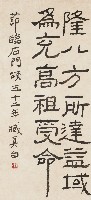 隆八方所達益域
為充高祖受命
節臨石門頌五十三